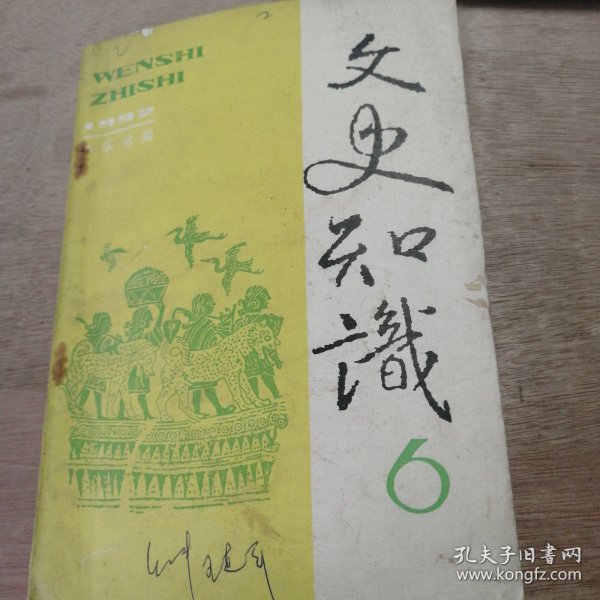 WENSHI
ZHISHI
中华书局
文史知識
6
孔夫子旧书网
www.kongfz.com